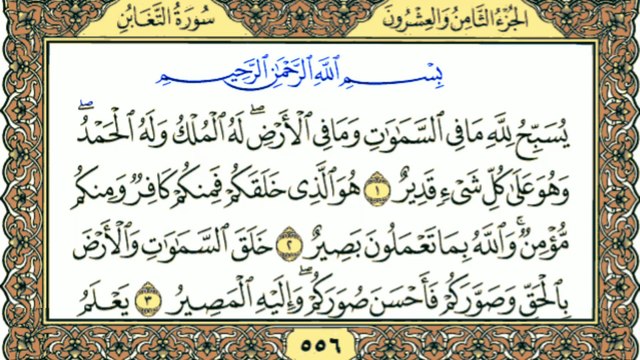 الجزء الثامن والعشرون
سورة التغابن
بِسْمِ اللَّهِ الرَّحْمَٰنِ الرَّحِيمِ
يُسَبِّحُ لِلَّهِ مَا فِي السَّمَاوَاتِ وَمَا فِي الْأَرْضِ ۖ لَهُ الْمُلْكُ وَلَهُ الْحَمْدُ ۖ
وَهُوَ عَلَىٰ كُلِّ شَيْءٍ قَدِيرٌ ١ هُوَ الَّذِي خَلَقَكُمْ فَمِنكُمْ كَافِرٌ وَمِنكُم
مُّؤْمِنٌ ۚ وَاللَّهُ بِمَا تَعْمَلُونَ بَصِيرٌ ٢ خَلَقَ السَّمَاوَاتِ وَالْأَرْضَ
بِالْحَقِّ وَصَوَّرَكُمْ فَأَحْسَنَ صُوَرَكُمْ ۖ وَإِلَيْهِ الْمَصِيرُ ٣ يَعْلَمُ
٥٥٦